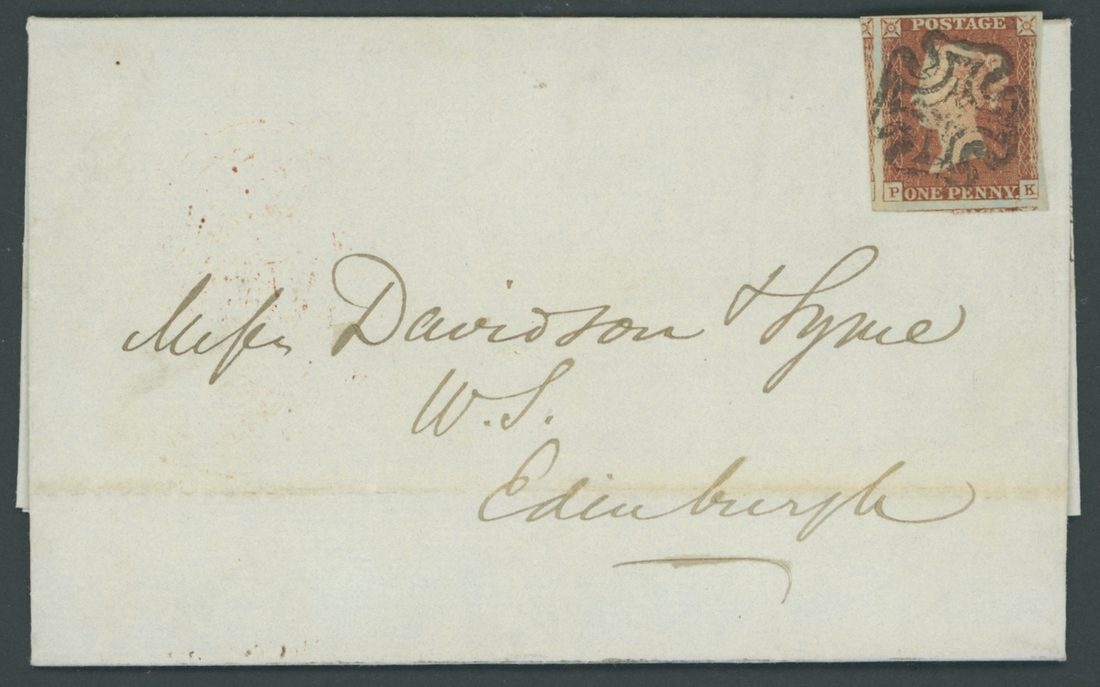 POSTAGE
P ONE PENNY. K
Messrs Davidson & Syme
W.S.
Edinburgh